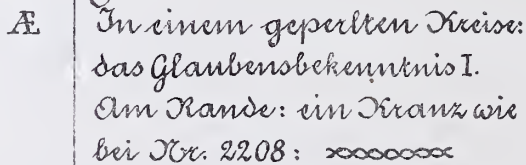 Æ In einem geperlten Kreise:
das Glaubensbekenntnis I.
Am Rande: ein Kranz wie
bei Nr. 2208: